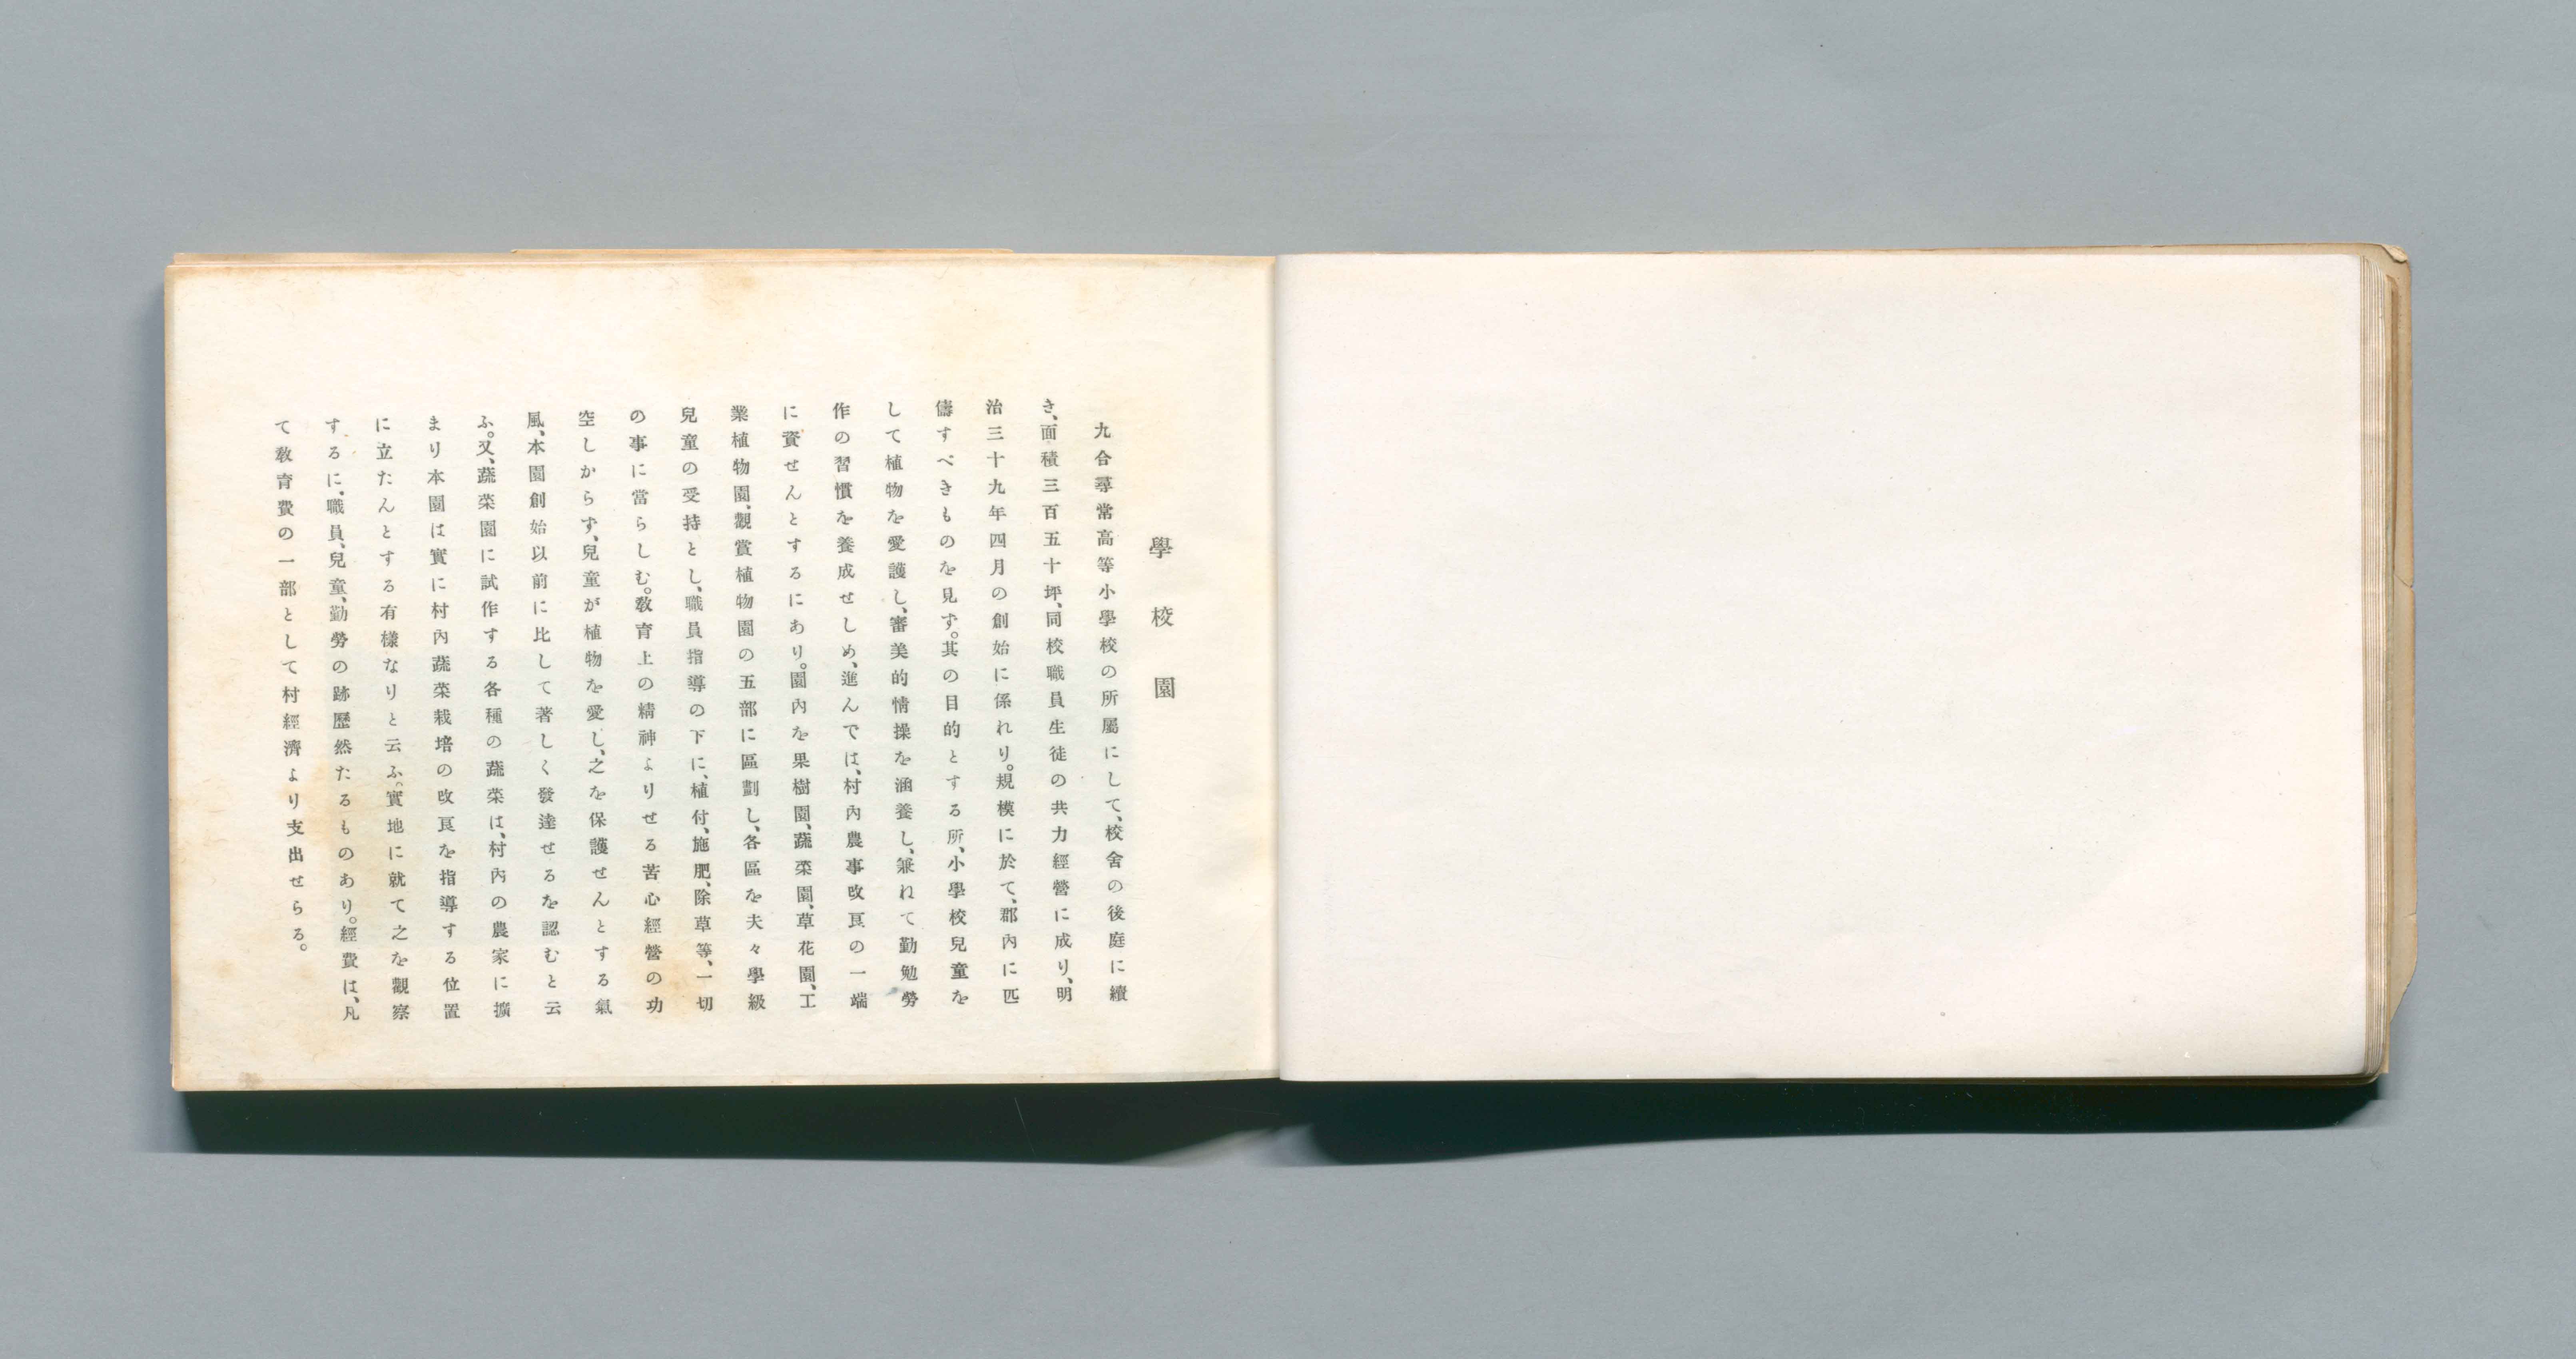 學校園
九合尋常高等小學校の所屬にして、校舍の後庭に續
き、面積三百五十坪、同校職員生徒の共力經營に成り、明
治三十九年四月の創始に係れり。規模に於て、郡內に匹
儔すべきものを見ず。其の目的とする所、小學校兒童を
して植物を愛護し、審美的情操を涵養し、兼ねて勤勉勞
作の習慣を養成せしめ、進んでは、村內農事改良の一端
に資せんとするにあり。園內を果樹園、蔬菜園、草花園、工
業植物園、觀賞植物園の五部に區劃し、各區を夫々學級
兒童の受持とし、職員指導の下に、植付、施肥、除草等、一切
の事に當らしむ。敎育上の精神よりせる苦心經營の功
空しからず、兒童が植物を愛し、之を保護せんとする氣
風、本園創始以前に比して著しく發達せるを認むと云
ふ。又、蔬菜園に試作する各種の蔬菜は、村內の農家に擴
まり本園は實に村內蔬菜栽培の改良を指導する位置
に立たんとする有樣なりと云ふ。實地に就て之を觀察
するに、職員、兒童、勤勞の跡歷然たるものあり。經費は、凡
て敎育費の一部として村經濟より支出せらる。